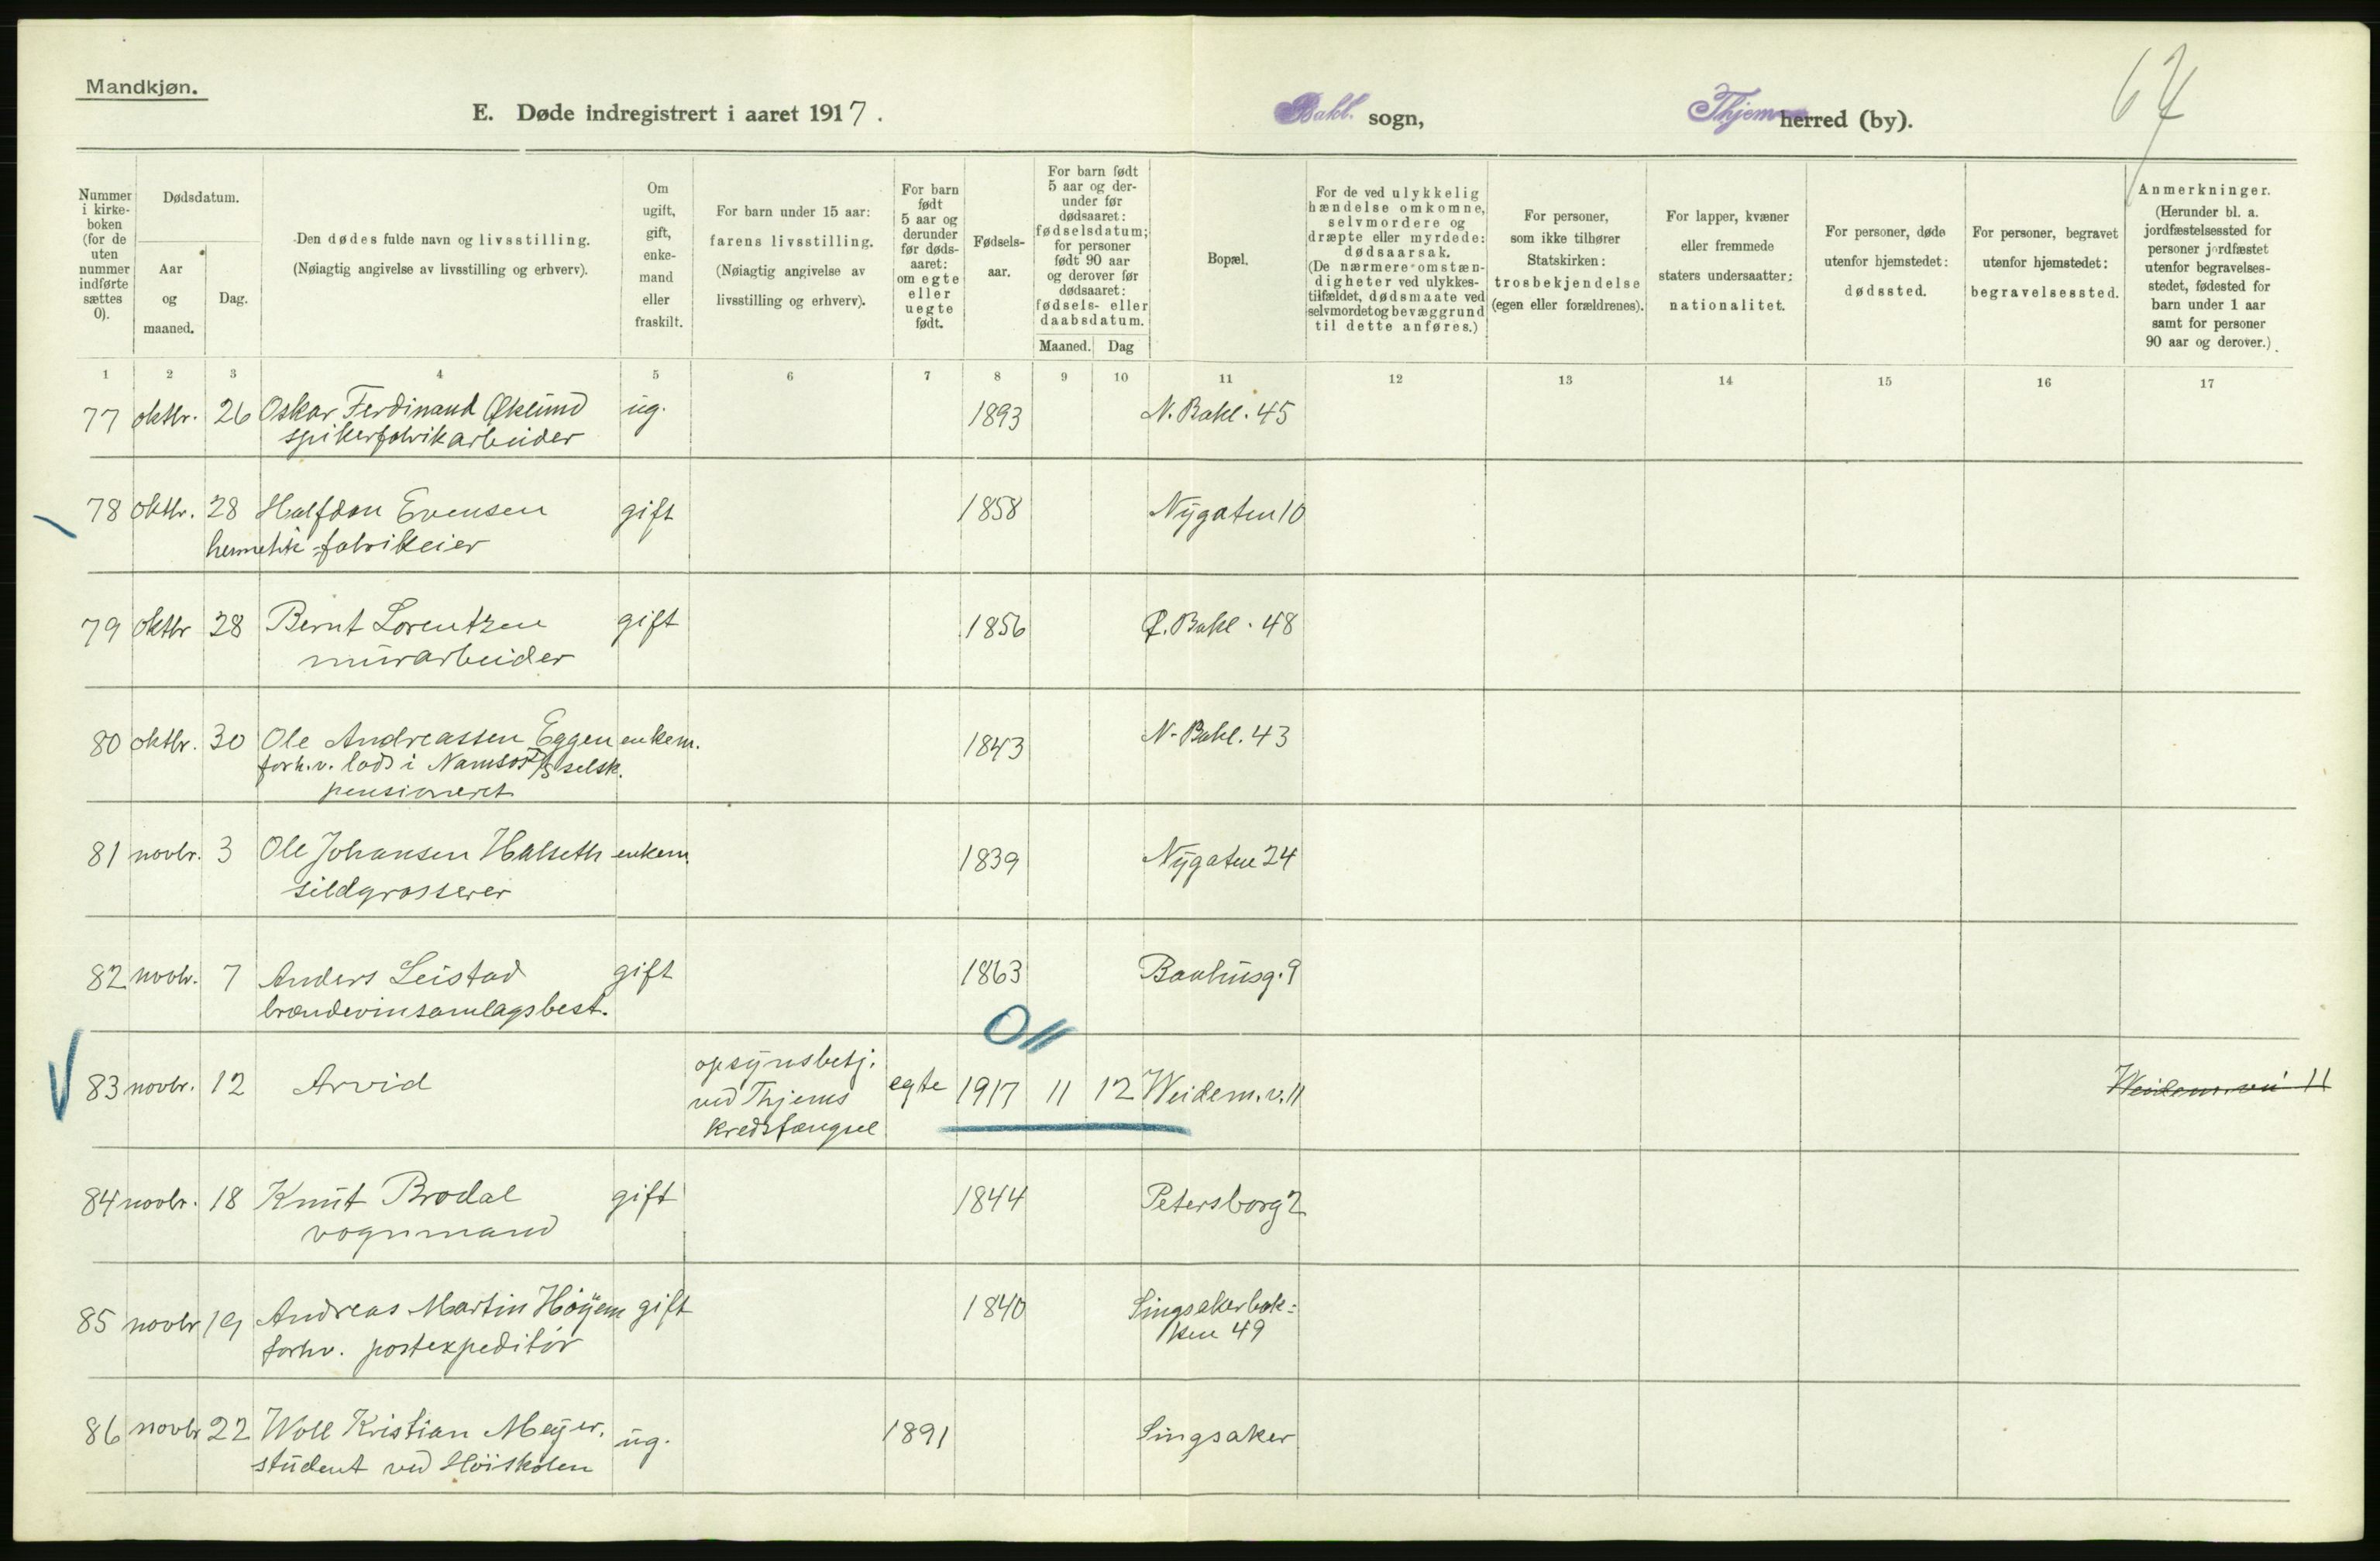 Mandkjøn.
E. Døde indregistrert i aaret 1917.
Bakl. sogn,
Thjem herred (by).
67
Nummer i kirke-boken (for de uten nummer indførte sættes 0).
Dødsdatum.
Aar og maaned.
Dag.
Den dødes fulde navn og livsstilling.
(Nøiagtig angivelse av livsstilling og erhverv).
Om ugift, gift, enke-mand eller fraskilt.
For barn under 15 aar:
farens livsstilling.
(Nøiagtig angivelse av livsstilling og erhverv).
For barn født 5 aar og derunder før døds-aaret: om egte eller uegte født.
Fødsels-aar.
For barn født 5 aar og der-under før dødsaaret: fødselsdatum; for personer født 90 aar og derover før dødsaaret: fødsels- eller daabsdatum.
Maaned. Dag
Bopæl.
For de ved ulykkelig hændelse omkomne, selvmordere og dræpte eller myrdede: dødsaarsak.
(De nærmere omstæn-digheter ved ulykkes-tilfældet, dødsmaate ved selvmordet og bevæggrund til dette anføres.)
For personer, som ikke tilhører Statskirken: trosbekjendelse (egen eller forældrenes).
For lapper, kvæner eller fremmede staters undersaatter: nationalitet.
For personer, døde utenfor hjemstedet: dødssted.
For personer, begravet utenfor hjemstedet: begravelsessted.
Anmerkninger.
(Herunder bl. a. jordfæstelsessted for personer jordfæstet utenfor begravelses-stedet, fødested for barn under 1 aar samt for personer 90 aar og derover.)
1 2 3 4 5 6 7 8 9 10 11 12 13 14 15 16 17
77 oktbr. 26 Oskar Ferdinand Øklund ug. 1893 N. Bakl. 45
spikerfabrikarbeider
78 oktbr. 28 Halfdan Evensen gift 1858 Nygaten 10
hermetik-fabrikeier
79 oktbr 28 Bernt Lorentzen gift 1856 Ø. Bakl. 48
murarbeider
80 oktbr. 30 Ole Andreassen Eggen enkem. 1843 N. Bakl. 43
forh.v. lods i Namsos D/S selsk.
pensioneret
81 novbr. 3 Ole Johansen Halseth enkem. 1839 Nygaten 24
sildgrosserer
82 novbr. 7 Anders Leistad gift 1863 Bakhusg. 9
brændevinsamlagsbest.
83 novbr. 12 Arvid opsynsbetj. ved Thjems kredsfængsel egte 1917 11 12 Weidem.v. 11 Weidem.vei 11
84 novbr. 18 Knut Brodal gift 1844 Petersborg 2
vognmand
85 novbr 19 Andreas Martin Höyem gift 1840 Singsakerbak=
ken 49
forhv. postexpeditör
86 novbr 22 Woll Kristian Meyer. ug. 1891 Singsaker
student ved Höiskolen